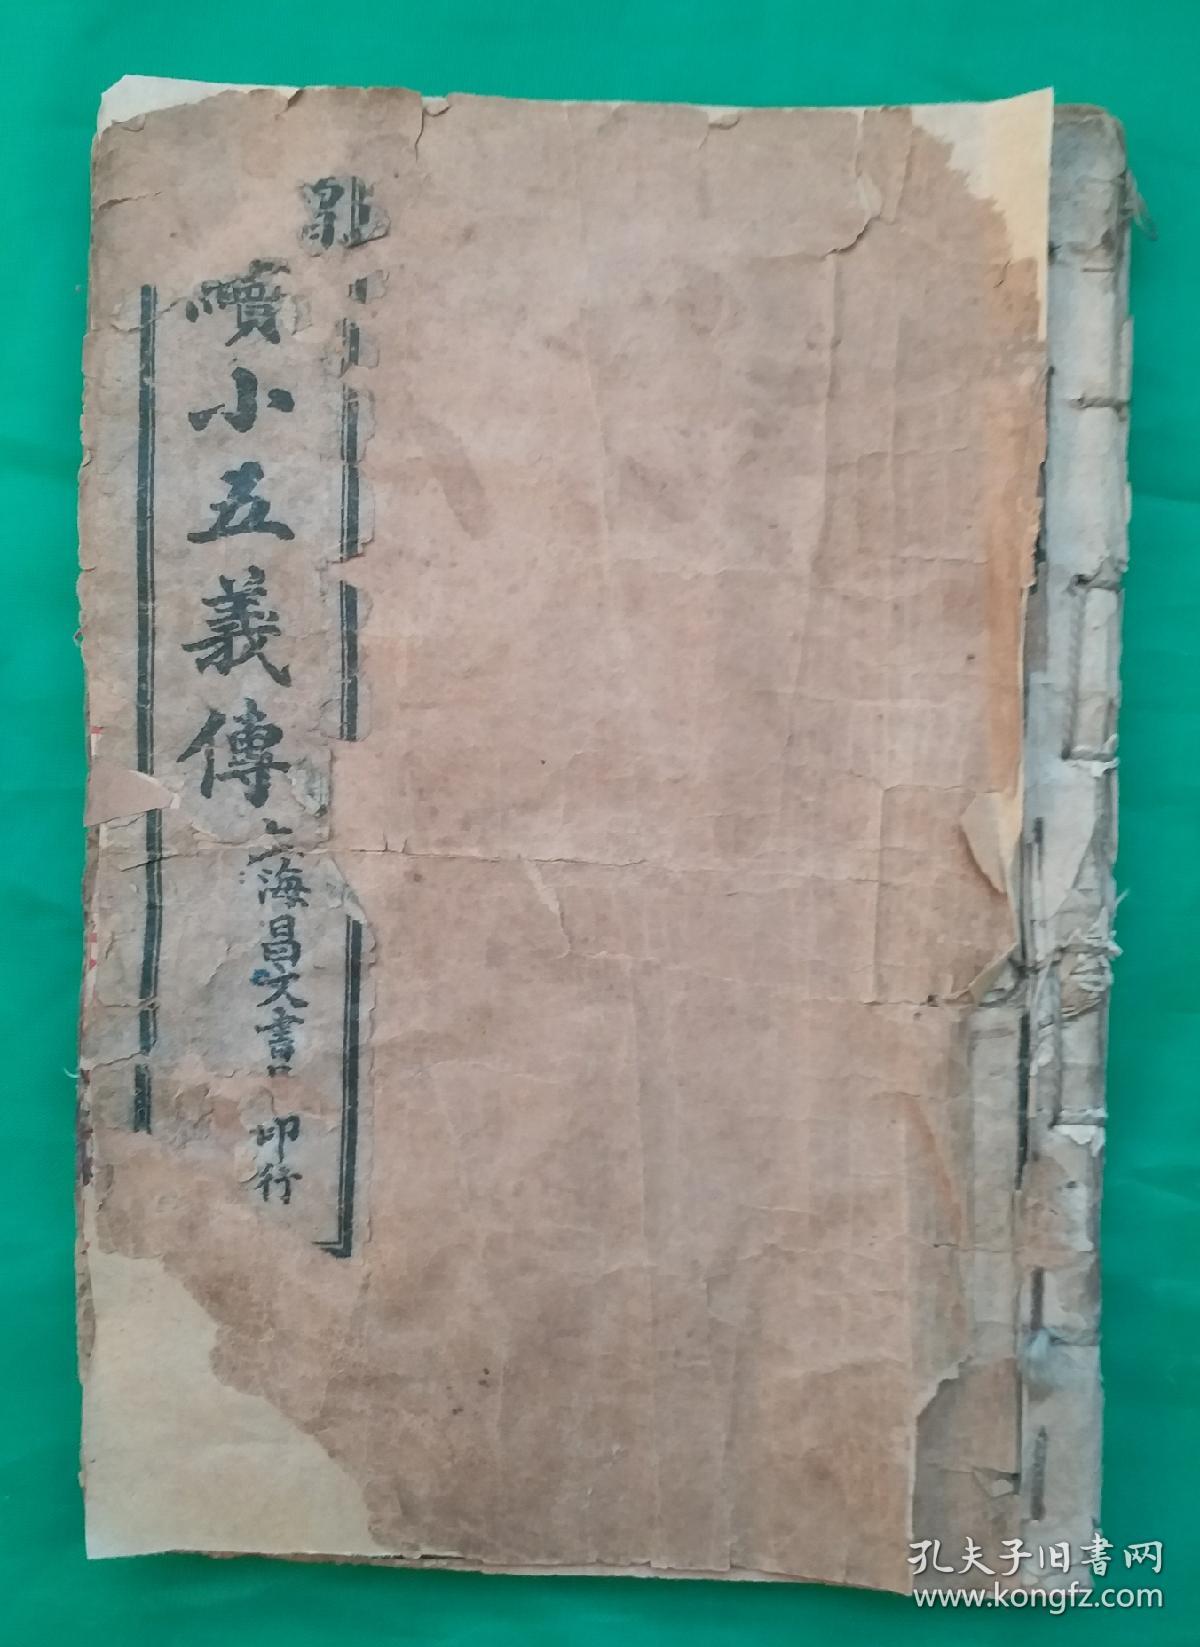 續小五義傳
上海昌文書局印行
孔夫子旧書网
www.kongfz.com